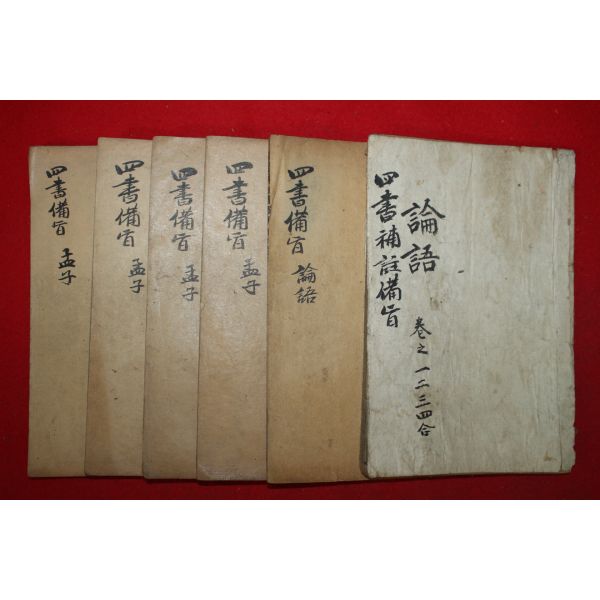 四書補註備旨
論語
卷之一二三四合
四書備旨 論語
四書備旨 孟子
四書備旨 孟子
四書備旨 孟子
四書備旨 孟子